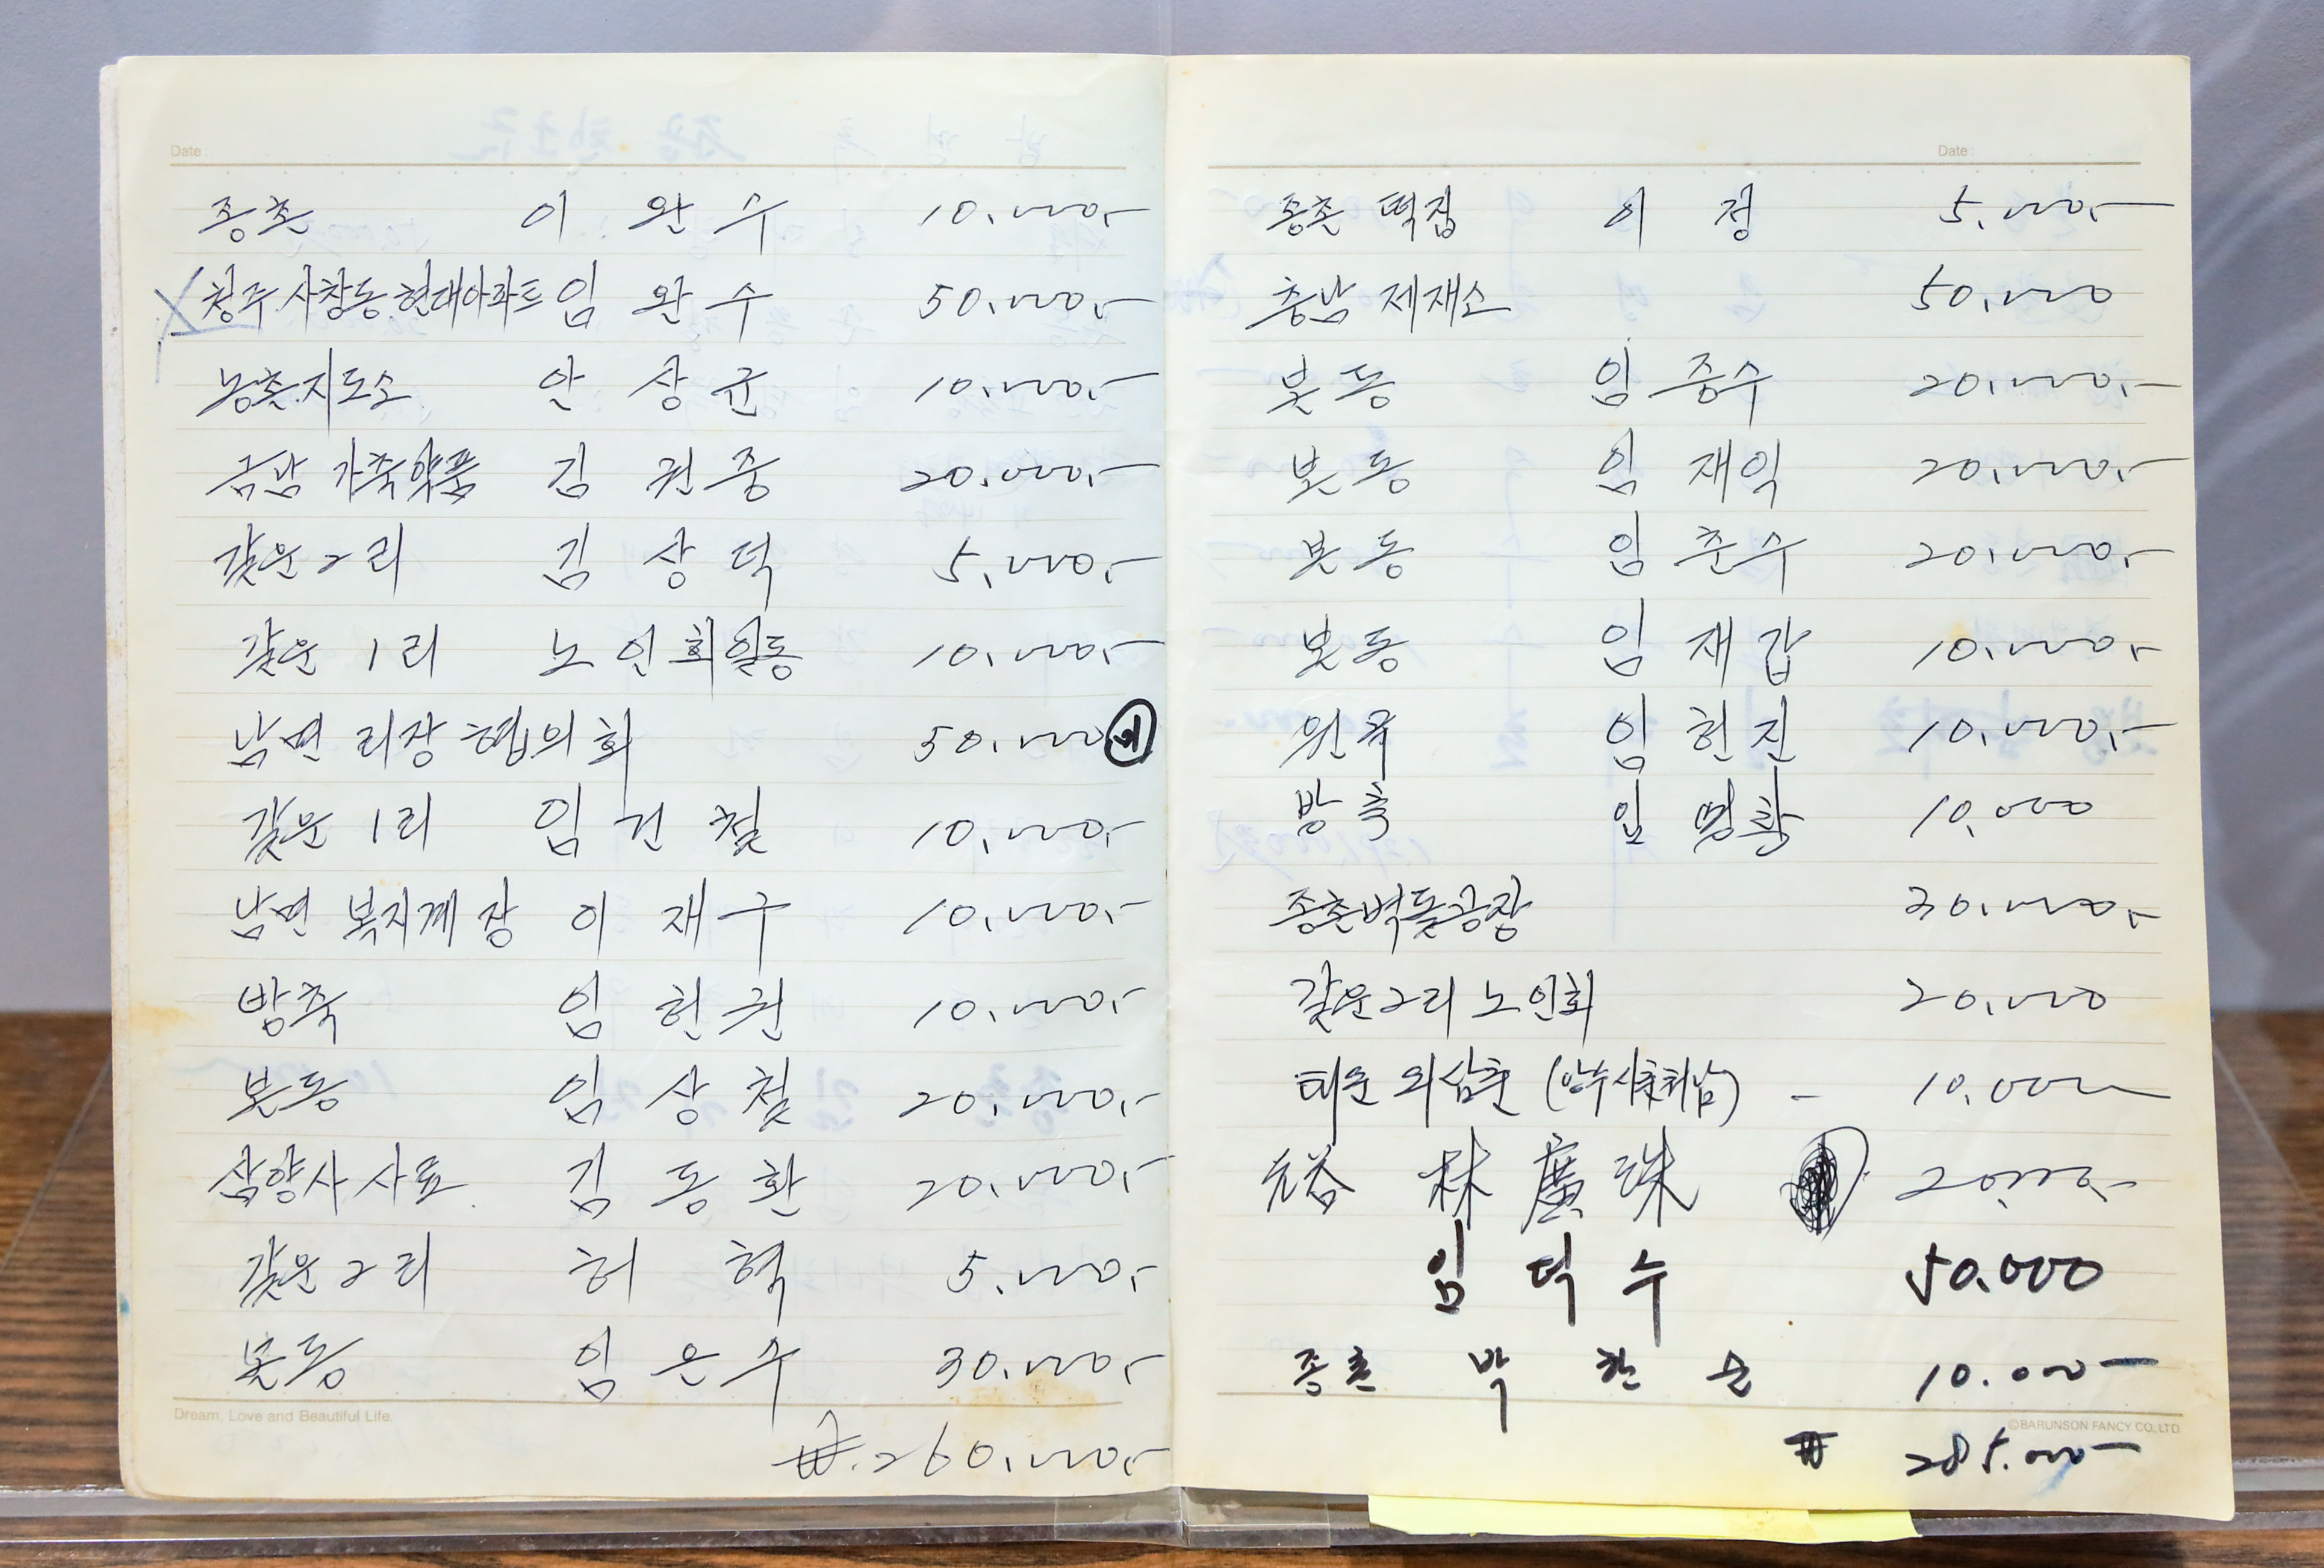 Date :
종촌 이 완 수 10.000.-
청주 사창동 현대아파트 임 완 수 50.000.-
농촌지도소 안 상 균 10.000.-
금남 가축약품 김 권 중 20.000.-
갈운 2리 김 상 덕 5.000.-
갈운 1리 노인회일동 10.000.-
남면 리장 협의회 50.000
갈운 1리 임 건 철 10.000.-
남면 복지계장 이 재 구 10.000.-
방축 임 헌 권 10.000.-
본동 임 상 철 20.000.-
삼양사 사료 김 동 환 20.000.-
갈운 2리 허 혁 5.000.-
본동 임 은 수 30.000.-
Dream, Love and Beautiful Life.
₩.260.000.-
Date :
종촌 떡집 이 정 5.000.-
충남 제재소 50.000
본동 임 중수 20.000.-
본동 임 재익 20.000.-
본동 임 준수 20.000.-
본동 임 재갑 10.000.-
임 헌진 10.000.-
방축 임 명환 10.000
종촌벽돌공장 30.000.-
갈운2리 노인회 20.000
태운 외삼촌 - 10.000
林 廣 珠 20.000.-
임 덕 수 50.000
종촌 박 한 순 10.000-
©BARUNSON FANCY CO., LTD.
₩ 285.000-